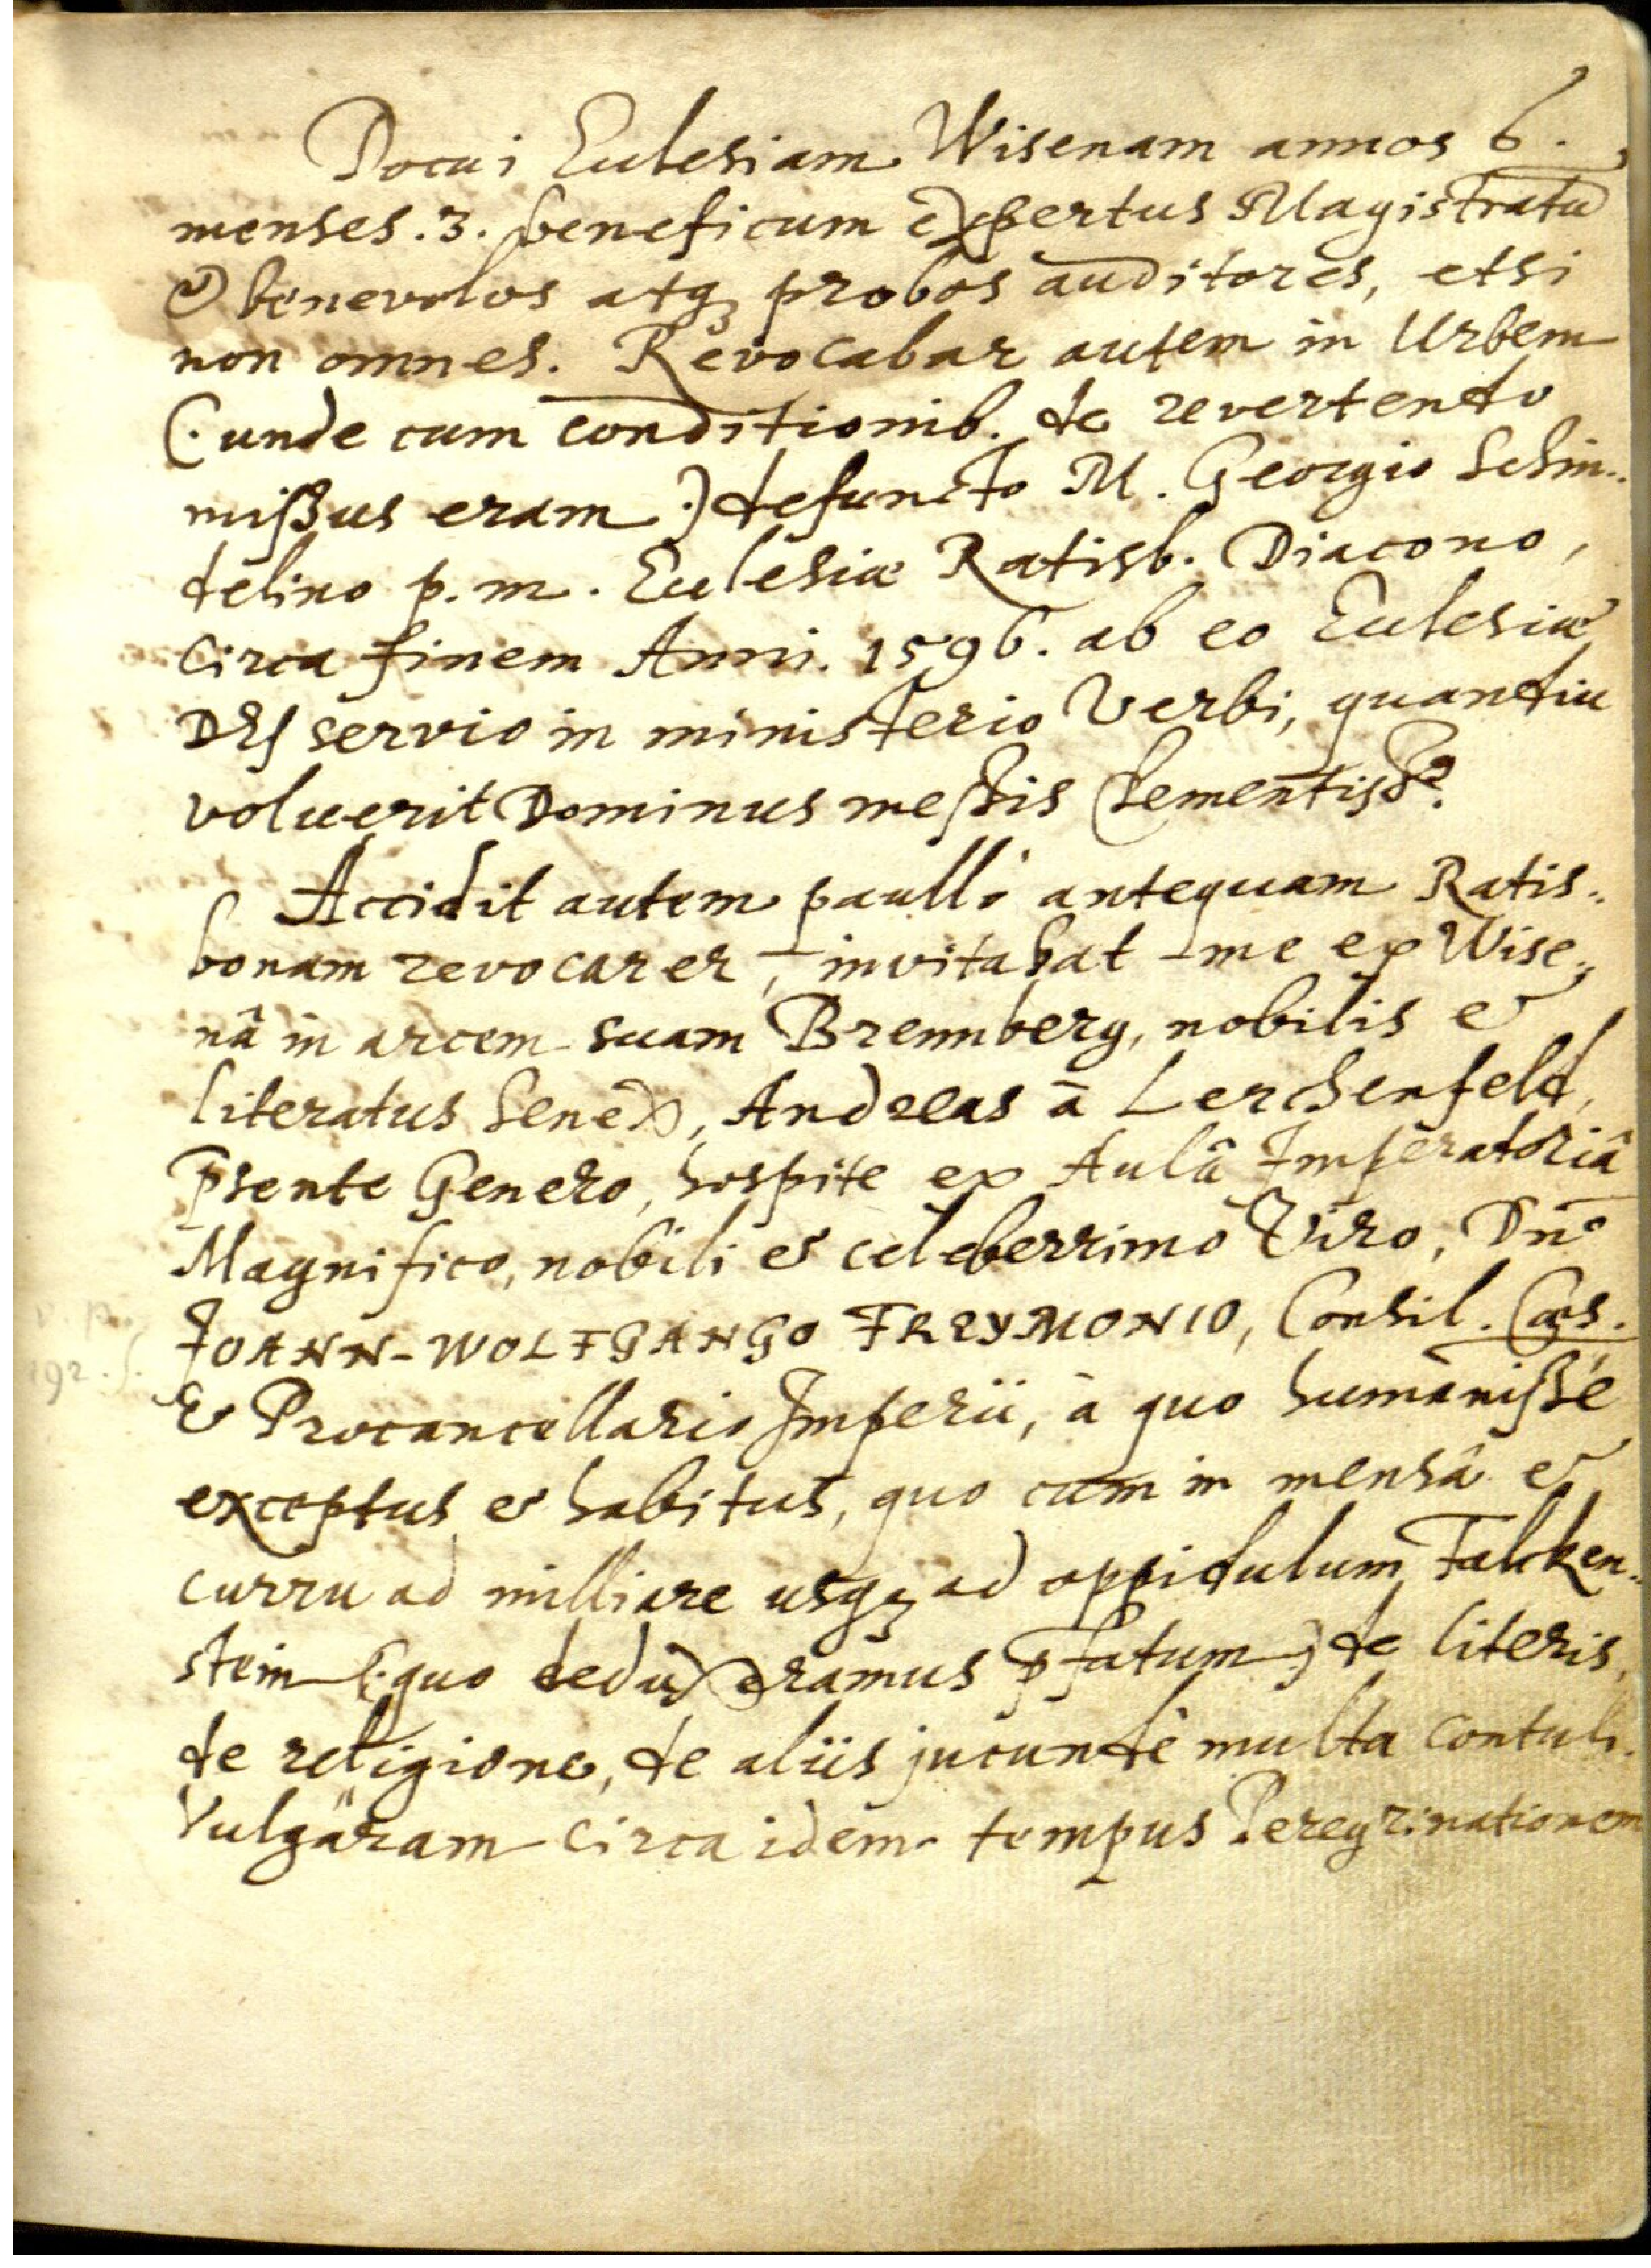 Docui Ecclesiam Wisenam annos 6.
menses. 3. beneficum expertus Magistratū
& benevolos atq; probos auditores, etsi
non omnes. Revocabar autem in Urbem
(: unde cum conditionib. de revertendo
mißus eram :) defuncto M. Georgio Schin-
delino p. m. Ecclesiæ Ratisb. Diacono,
circa finem Anni. 1596. ab eo Ecclesiæ
servio in ministerio Verbi, quandiu
voluerit Dominus meßis clementiss.
Accidit autem paullò antequam Ratis-
bonam revocarer, invitabat me ex Wise-
nâ in arcem suam Brennberg, nobilis &
literatus Senex, Andreas à Lerchenfeld,
p̄sente Genero, hospite ex Aulâ Imperatoriâ
Magnifico, nobili & celeberrimo Viro, Dn̄o
JOANN-WOLFGANGO FREYMONIO, Consil. Cæs.
& Procancellario Imperii, à quo humanißé
exceptus & habitus, quo cum in mensâ &
curru ad milliare usq; ad oppidulum Falcken-
stein (: quo deduxeramus p̄fatum :) de literis,
de religione, de aliis jucundè multa contuli.
Vulgâram circa idem tempus Peregrinationem
192. f.